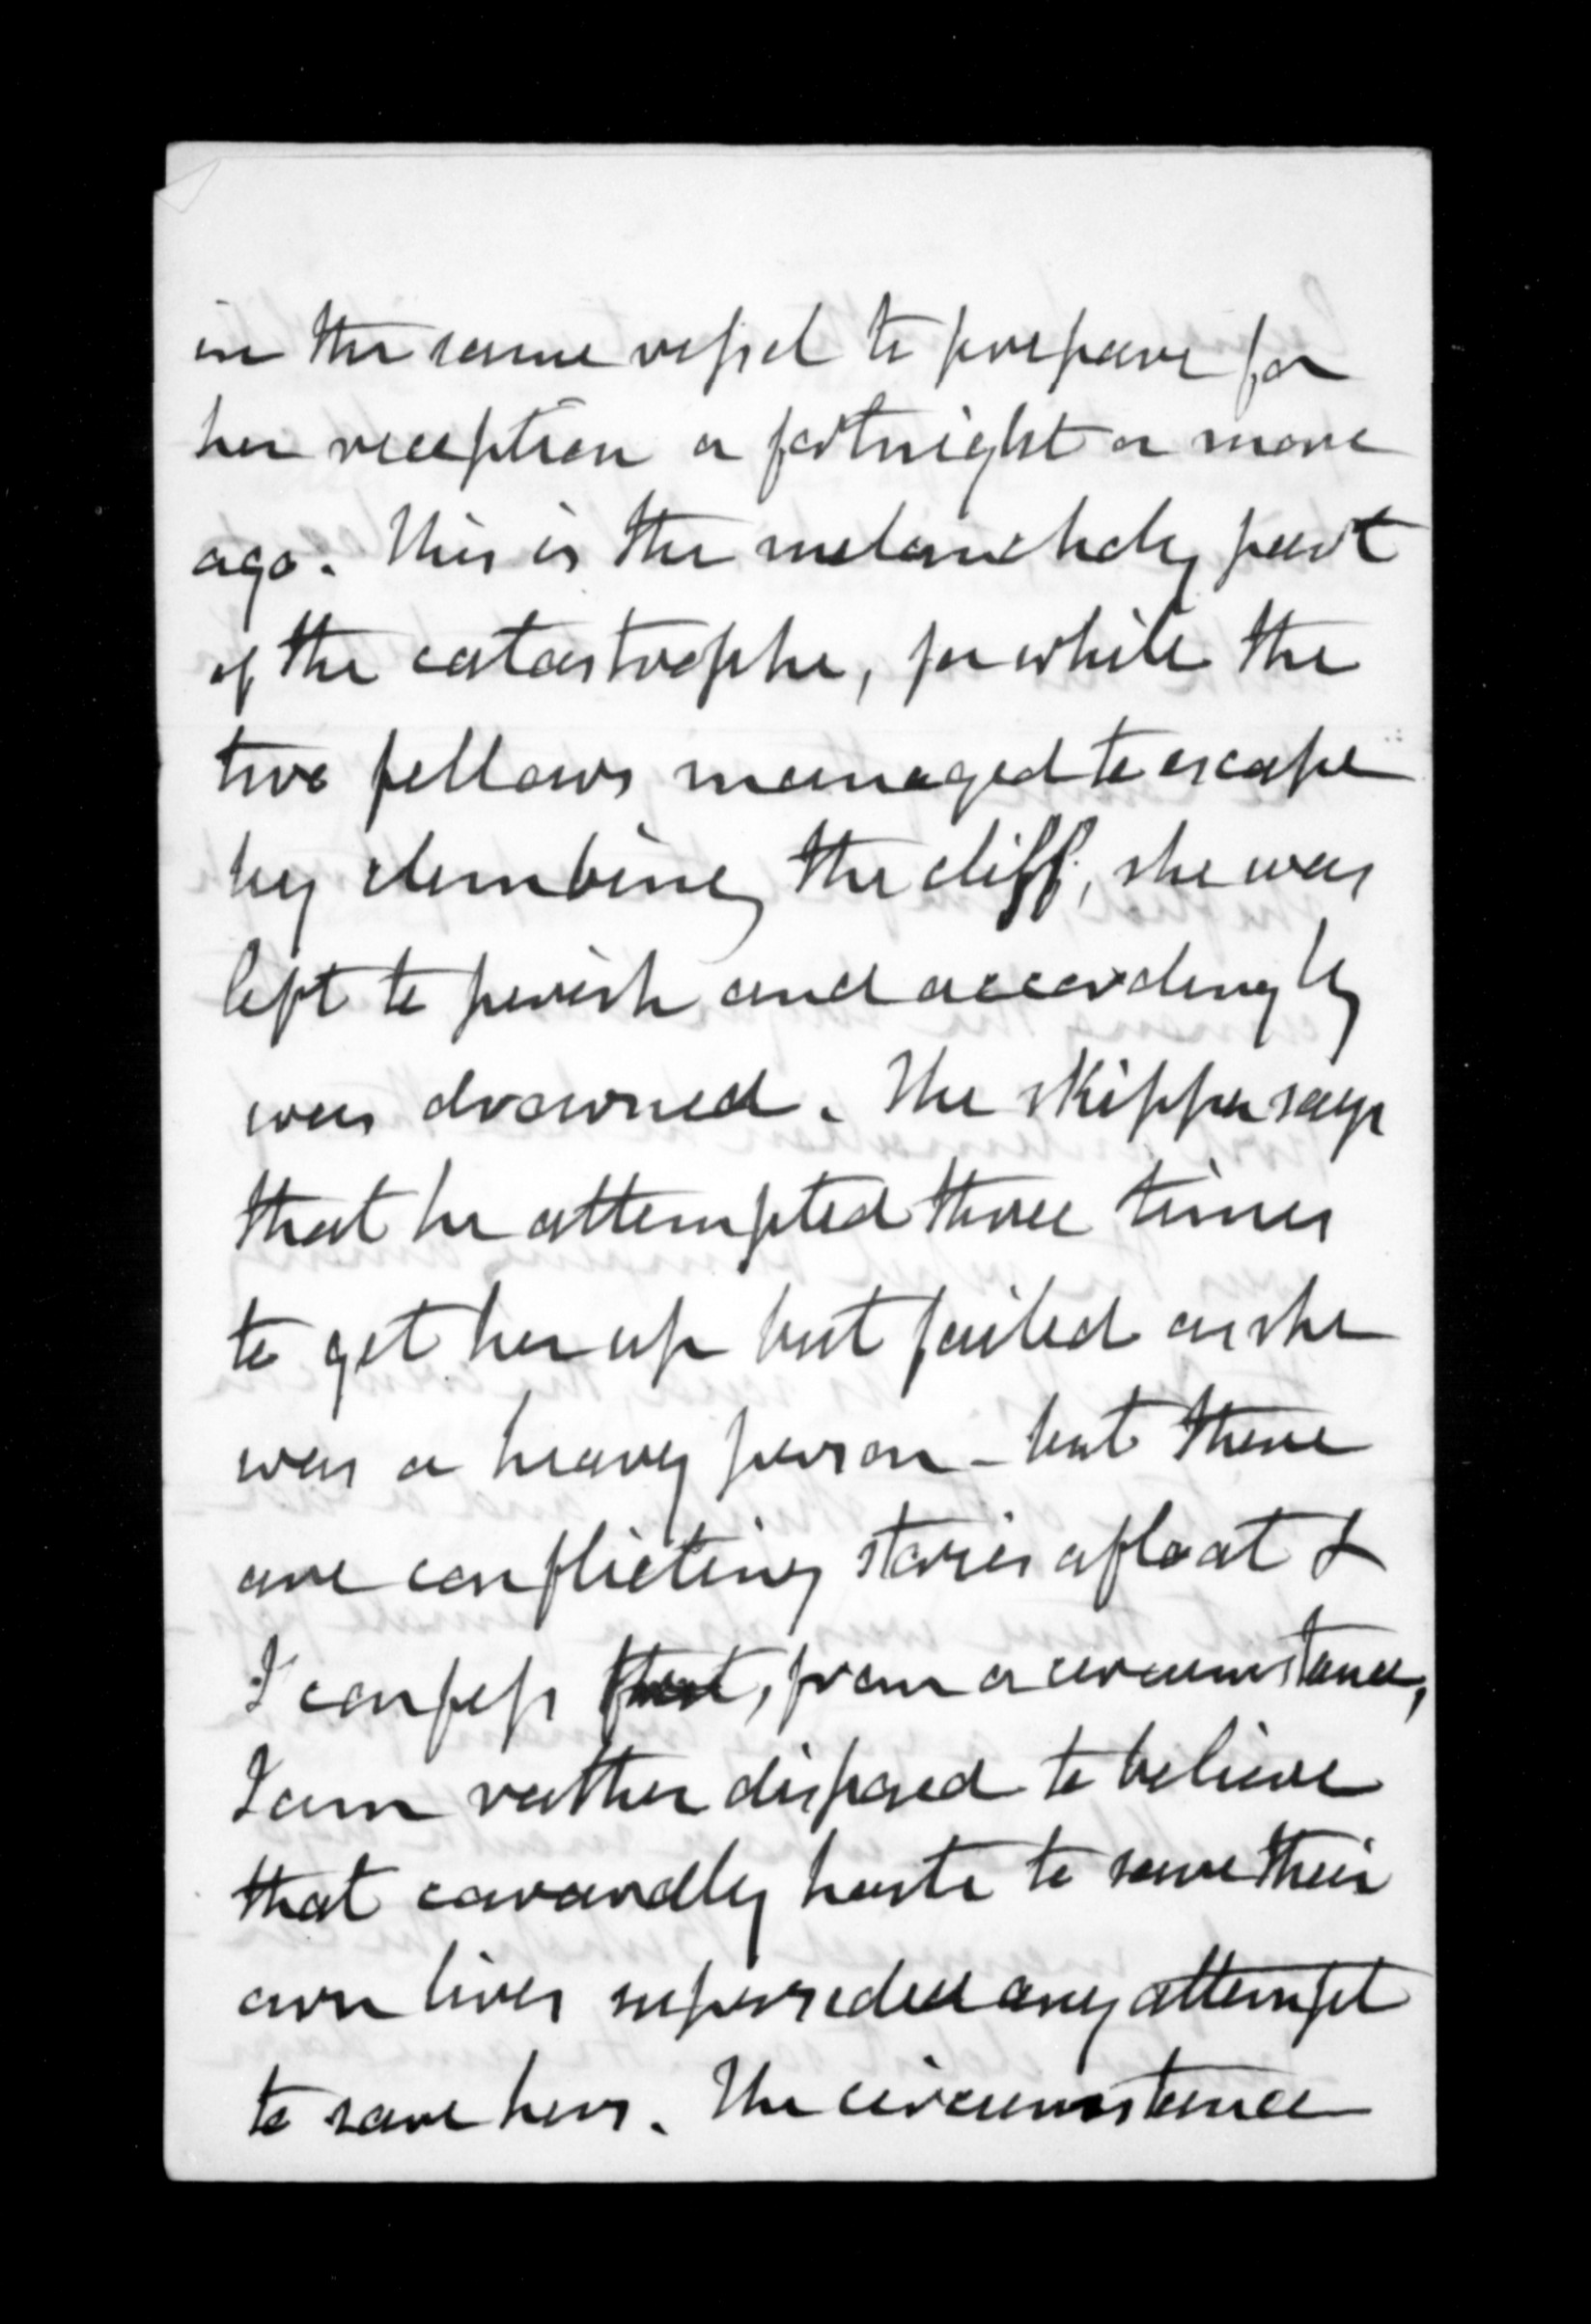 in the same vessel to prepare for
her reception a fortnight or more
ago. This is the melancholy part
of the catastrophe, for while the
two fellows managed to escape
by climbing the cliff, she was
left to perish and accordingly
was drowned. The skipper says
that he attempted three times
to get her up but failed as she
was a heavy person - but there
are conflicting stories afloat &
I confess that, from a circumstance,
I am rather disposed to believe
that cowardly haste to save their
own lives superseded any attempt
to save hers. The circumstance